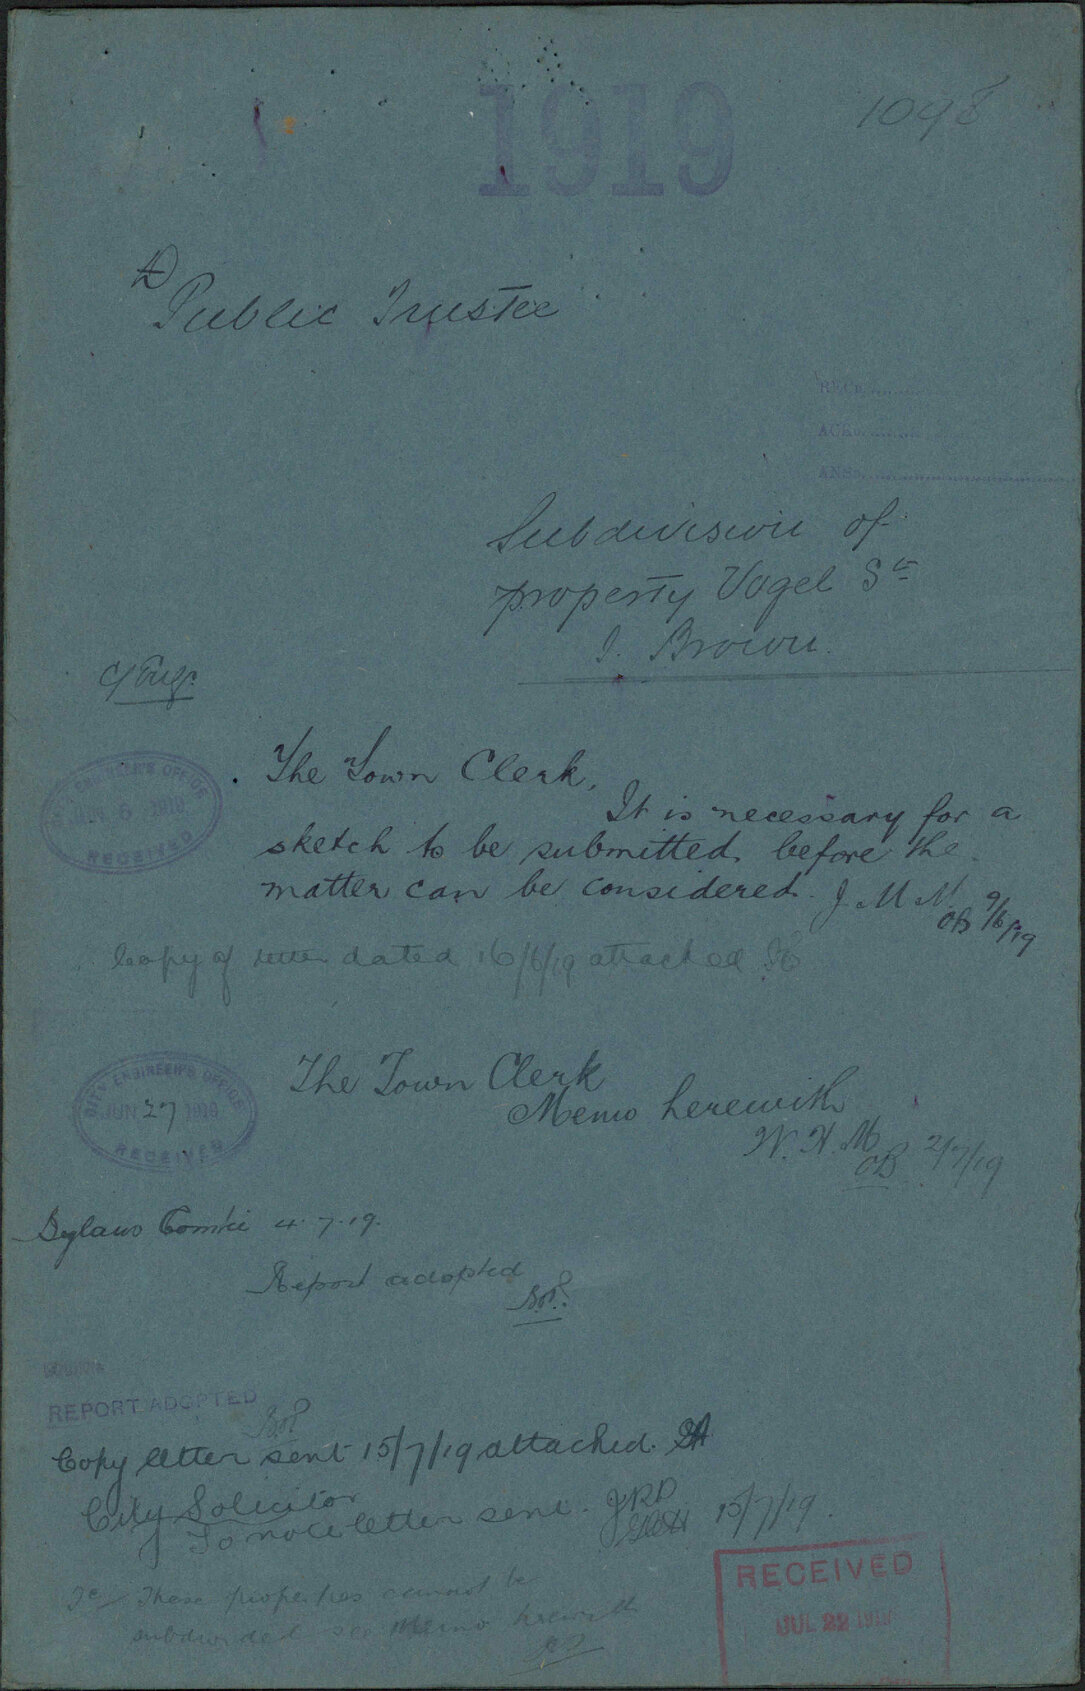 1919
1098
D
Public Trustee
REC
ACK
ANS
Subdivision of
property Vogel St
J. Brown.
C/Engr.
CITY ENGINEER'S OFFICE
JUN 6 1919
RECEIVED
The Town Clerk,
It is necessary for a
sketch to be submitted before the
matter can be considered. J. M. M.
OB 9/6/19
Copy of letter dated 16/6/19 attached
CITY ENGINEER'S OFFICE
JUN 27 1919
RECEIVED
The Town Clerk
Memo herewith
W. H. M
OB 2/7/19
Bylaws Comtee 4.7.19.
Report adopted
REPORT ADOPTED
Copy letter sent 15/7/19 attached. SA
City Solicitor
To note letter sent. JRD
15/7/19.
TC These properties cannot be
subdivided see Memo herewith
RECEIVED
JUL 22 1919